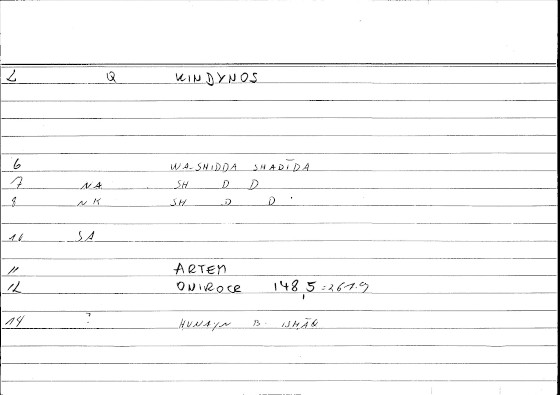 2 Q KINDYNOS
6 WA-SHIDDA SHADĪDA
7 NA SH D D
8 NK SH D D
10 SA
11 ARTEM
12 ONIROCR 148,5 = 261.9
14 ? HUNAYN B. ISHĀQ